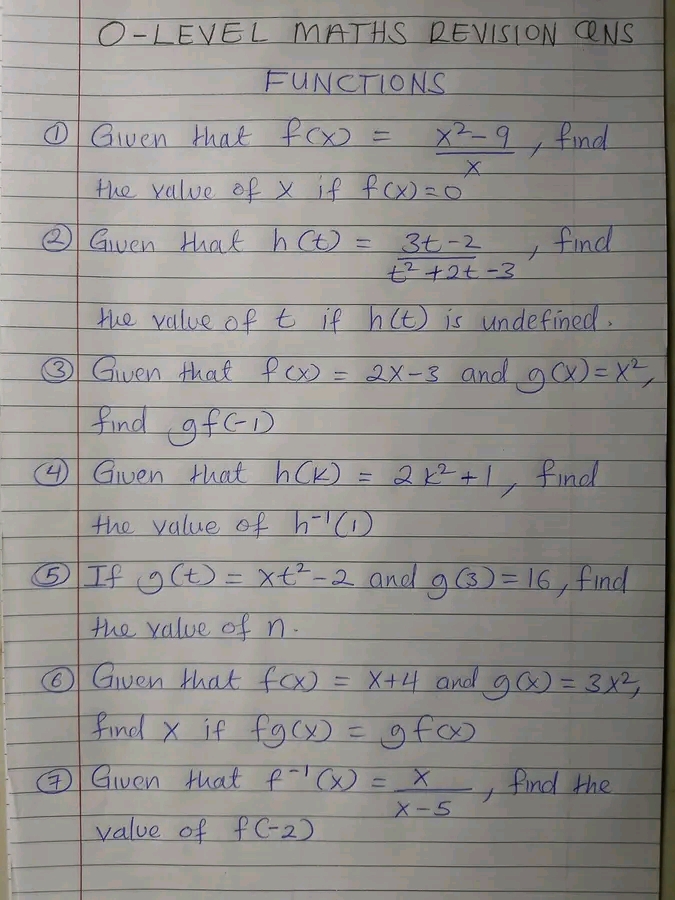 O-LEVEL MATHS REVISION QNS
FUNCTIONS
① Given that f(x) = x²-9/x, find
the value of x if f(x)=0
② Given that h(t) = 3t-2/t²+2t-3, find
the value of t if h(t) is undefined.
③ Given that f(x) = 2x-3 and g(x)=x²,
find gf(-1)
④ Given that h(k) = 2k²+1, find
the value of h⁻¹(1)
⑤ If g(t) = xt²-2 and g(3)=16, find
the value of n.
⑥ Given that f(x) = x+4 and g(x)=3x²,
find x if fg(x) = gf(x)
⑦ Given that f⁻¹(x) = x/x-5, find the
value of f(-2)